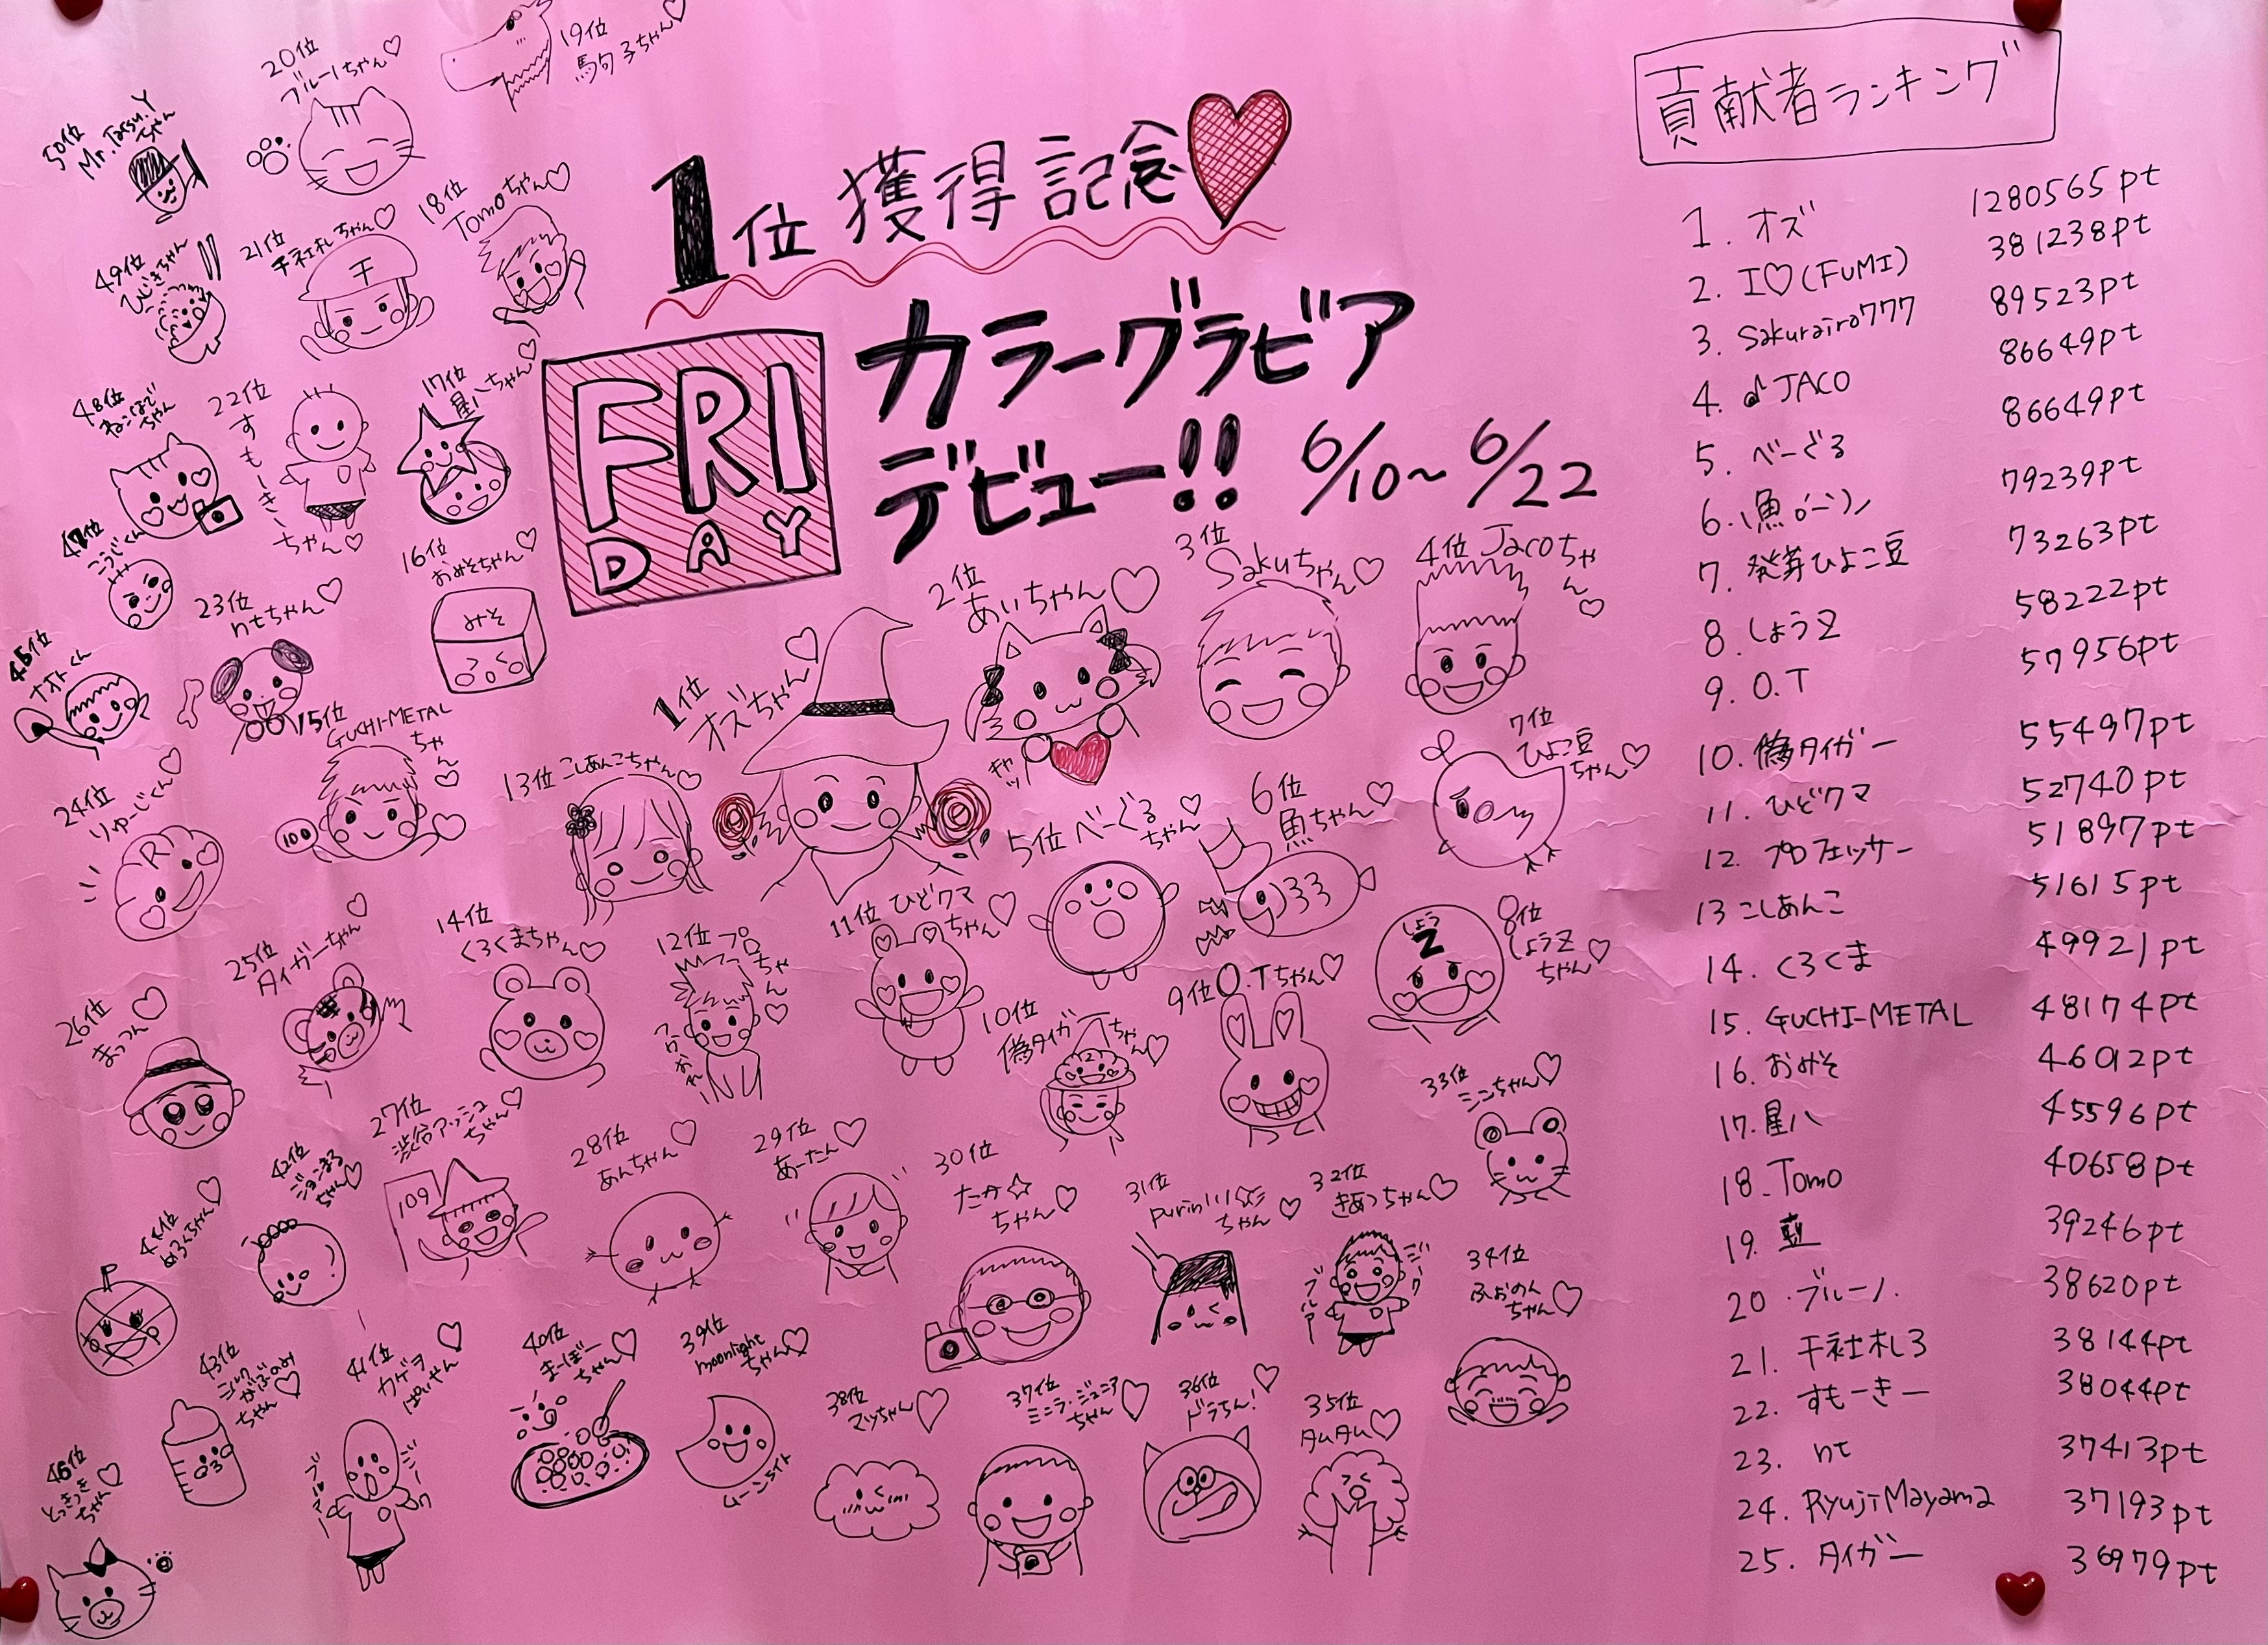 1位 獲得 記念
FRI
DAY
カラーグラビア
デビュー!! 6/10〜6/22
1位
オズちゃん
2位
あいちゃん
キャッ
3位
Sakuちゃん
4位 Jacoちゃん
5位 べーぐる
ちゃん
6位
魚ちゃん
7位
ひよこ豆
ちゃん
8位
しょうZ
ちゃん
9位 O.Tちゃん
10位
偽タイガーちゃん
11位 ひどクマ
ちゃん
12位 プロちゃん
13位 こしあんこちゃん
14位
くろくまちゃん
15位
GUCHI-METAL
ちゃん
100
16位
おみそちゃん
みそ
17位
星八ちゃん
18位
Tomoちゃん
19位
20位
ブルーノちゃん
21位
干社札ちゃん
干
22位
すもーきーちゃん
23位
ntちゃん
24位
りゅーじくん
R
25位
タイガーちゃん
26位
まっつん
27位
渋谷アッシュ
ちゃん
109
28位
あんちゃん
29位
あーたん
30位
たか☆
ちゃん
31位
ちゃん
32位
きあつちゃん
33位
ミンちゃん
34位
ふぉのん
ちゃん
35位
タムタム
36位
ドラちん!
37位
ミニラ・ジュニア
ちゃん
38位
マッちゃん
39位
moonlight
ちゃん
ムーンライト
40位
まーぼー
ちゃん
41位
カゲヲ
ぱいせん
42位
ジョンまる
ちゃん
43位
ちゃん
44位
めろくろちゃん
45位
ナオトくん
46位
とっきっき
ちゃん
47位
こうじくん
48位
ちゃん
49位
ひじきちゃん
50位
Mr.Tatsu.Y
ちゃん
貢献者ランキング
1. オズ 1280565pt
2. I♡(FUMI) 381238pt
3. Sakurairo777 89523pt
4. ♪JACO 86649pt
5. べーぐる 86649pt
6. 魚 79239pt
7. 発芽ひよこ豆 73263pt
8. しょうZ 58222pt
9. O.T 57956pt
10. 偽タイガー 55497pt
11. ひどクマ 52740pt
12. プロフェッサー 51897pt
13 こしあんこ 51615pt
14. くろくま 49921pt
15. GUCHI-METAL 48174pt
16. おみそ 46092pt
17. 星八 45596pt
18. Tomo 40658pt
19. 39246pt
20. ブルーノ. 38620pt
21. 干社札3 38144pt
22. すもーきー 38044pt
23. nt 37413pt
24. RyujiMayama 37193pt
25. タイガー 36979pt